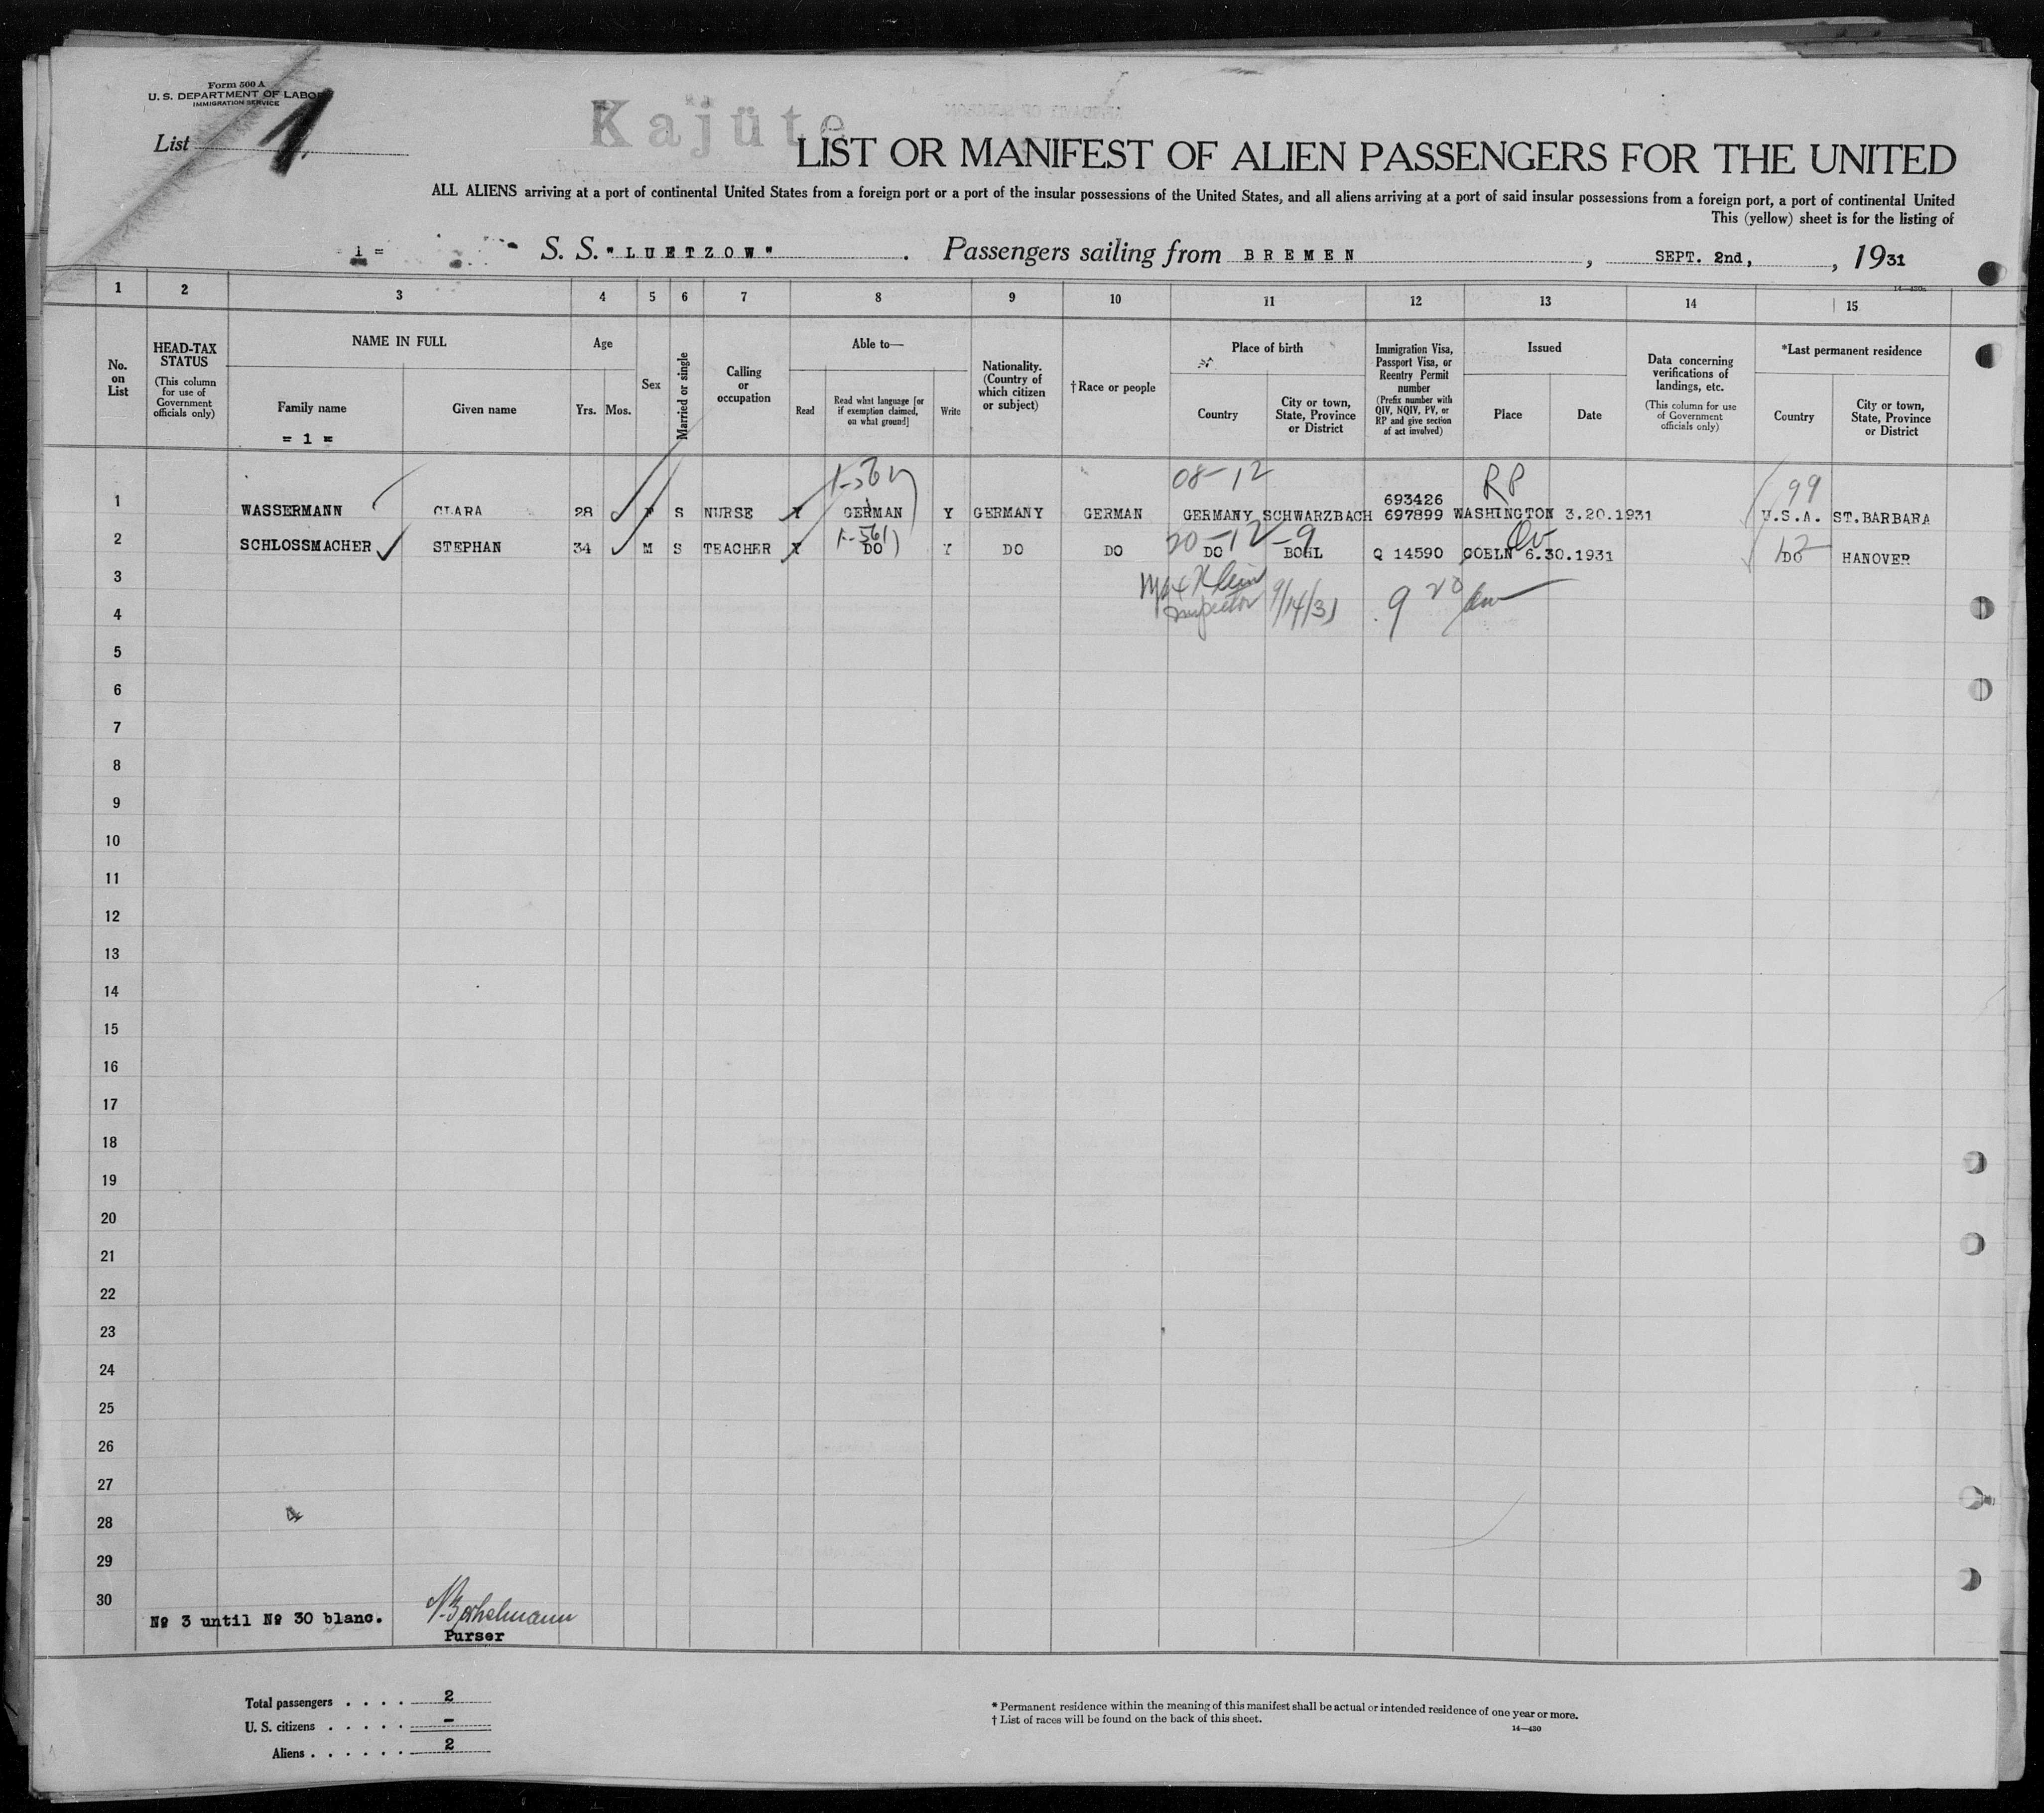 Form 500 A
U. S. DEPARTMENT OF LABOR
IMMIGRATION SERVICE
List 1
Kajüte
LIST OR MANIFEST OF ALIEN PASSENGERS FOR THE UNITED
ALL ALIENS arriving at a port of continental United States from a foreign port or a port of the insular possessions of the United States, and all aliens arriving at a port of said insular possessions from a foreign port, a port of continental United
This (yellow) sheet is for the listing of
- 1 = S. S. "LUETZOW" . Passengers sailing from BREMEN , SEPT. 2nd, , 1931
14—430a
1 2 3 4 5 6 7 8 9 10 11 12 13 14 15
No. on List
HEAD-TAX STATUS
(This column for use of Government officials only)
NAME IN FULL
Family name
= 1 =
Given name
Age
Yrs. Mos.
Sex
Married or single
Calling or occupation
Able to—
Read
Read what language [or if exemption claimed, on what ground]
Write
Nationality. (Country of which citizen or subject)
†Race or people
Place of birth
Country
City or town, State, Province or District
Immigration Visa, Passport Visa, or Reentry Permit number
(Prefix number with QIV, NQIV, PV, or RP and give section of act involved)
Issued
Place
Date
Data concerning verifications of landings, etc.
(This column for use of Government officials only)
*Last permanent residence
Country
City or town, State, Province or District
08-12 RP 99
693426
1 WASSERMANN CLARA 28 F S NURSE Y GERMAN Y GERMANY GERMAN GERMANY SCHWARZBACH 697899 WASHINGTON 3.20.1931 U.S.A. ST.BARBARA
1-561 20-12-9 12
2 SCHLOSSMACHER STEPHAN 34 M S TEACHER Y DO Y DO DO DO BOHL Q 14590 COELN 6.30.1931 DO HANOVER
3 Max Klein
4 Inspector 9/14/31 9 20 am
5
6
7
8
9
10
11
12
13
14
15
16
17
18
19
20
21
22
23
24
25
26
27
28
29
30
№ 3 until № 30 blanc.
Purser
Total passengers . . . . 2
U. S. citizens . . . . . -
Aliens . . . . . . 2
* Permanent residence within the meaning of this manifest shall be actual or intended residence of one year or more.
† List of races will be found on the back of this sheet.
14—430